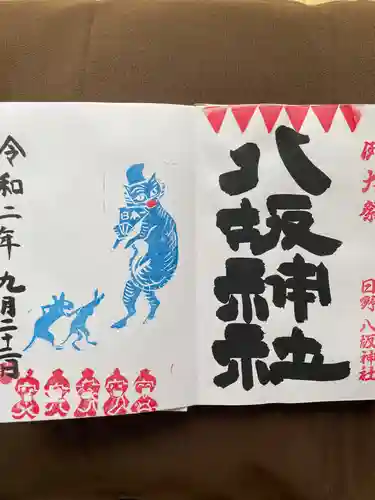 例大祭
日野 八坂神社
八坂神社
日本
令和二年九月二十一日